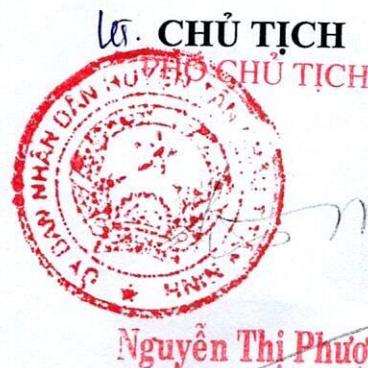 KT. CHỦ TỊCH
PHÓ CHỦ TỊCH
ỦY BAN NHÂN DÂN
NINH
Nguyễn Thị Phượ